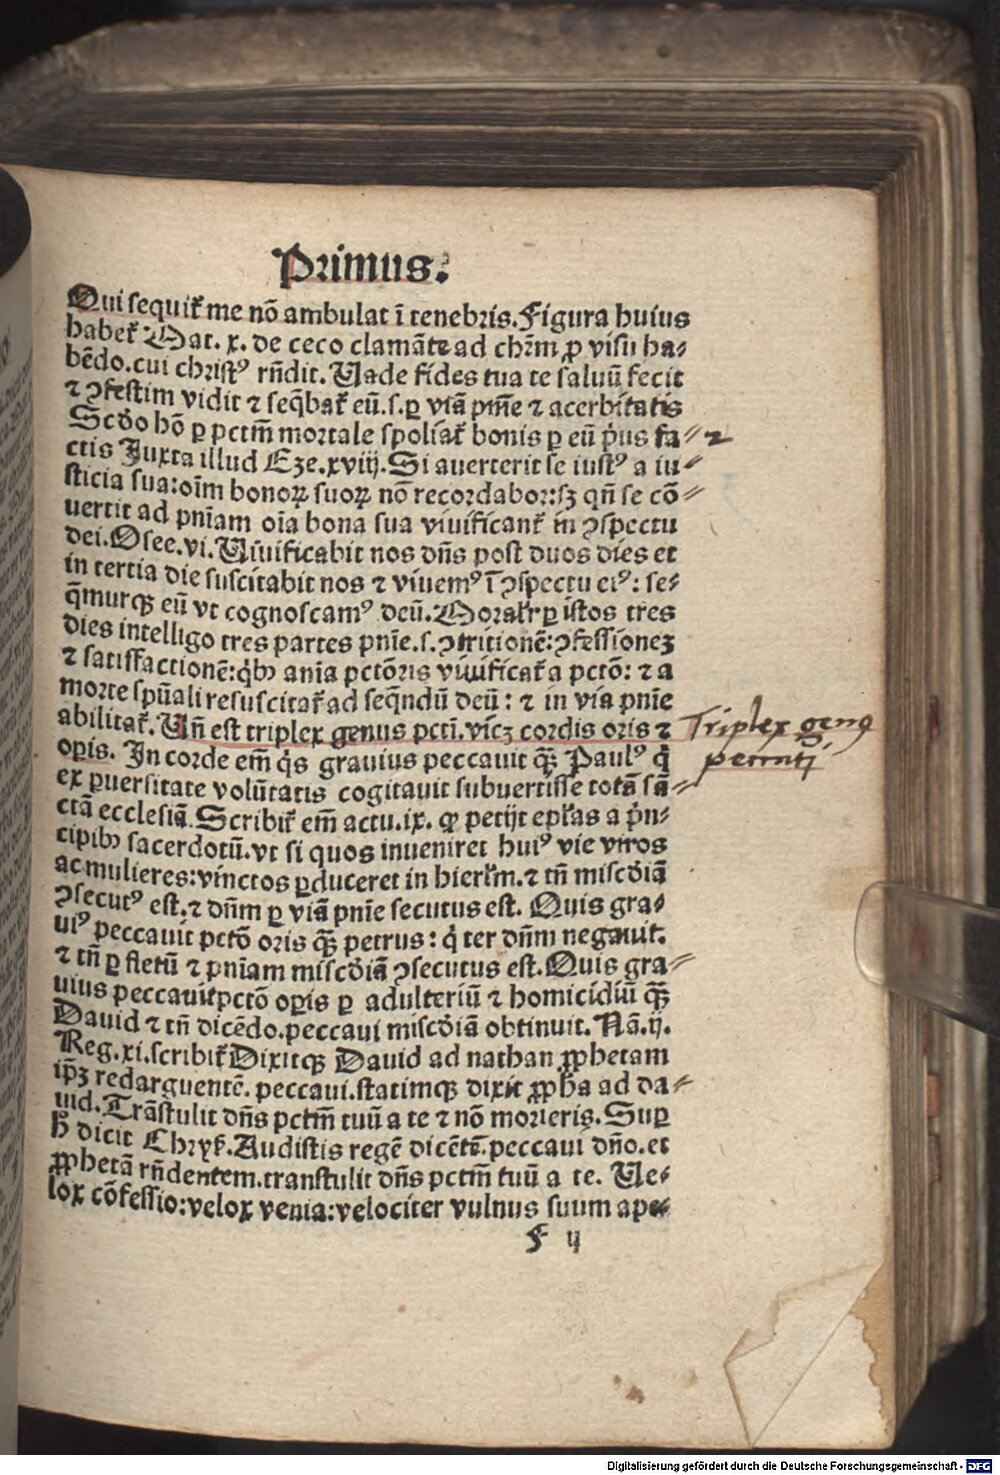 Primus.
Qui sequit᷑ me nō ambulat ī tenebris. Figura huius
habet᷑ Mat. x. de ceco clamāte ad chr̄m ꝓ visu ha⸗
bēdo. cui christꝰ rn̄dit. Uade fides tua te saluū fecit
⁊ ꝯfestim vidit ⁊ seq̄bat᷑ eū. s. ꝑ viā pn̄ie ⁊ acerbitatis
Scd̄o hō ꝑ pctm̄ mortale spoliat᷑ bonis ꝑ eū p̄us fa⸗
ctis Juxta illud Eze. xviij. Si auerterit se iustꝰ a iu⸗
sticia sua: oīm bonoꝝ suoꝝ nō recordabor: sꝫ qn̄ se cō⸗
uertit ad pn̄iam oīa bona sua viuificant᷑ in ꝯspectu
dei. Osee. vi. Uiuificabit nos dn̄s post duos dies et
in tertia die suscitabit nos ⁊ viuemꝰ ī ꝯspectu eiꝰ: se⸗
q̄murqꝫ eū vt cognoscamꝰ deū. Moralr̄ ꝑ istos tres
dies intelligo tres partes pn̄ie. s. ꝯtritionē: ꝯfessioneꝫ
⁊ satisfactionē: q̇bꝰ anīa pctōris viuificat᷑ a pctō: ⁊ a
morte spūali resuscitat᷑ ad seq̄ndū deū: ⁊ in via pn̄ie
abilitat᷑. Un̄ est triplex genus pcti. vicꝫ cordis oris ⁊
oꝑis. In corde em̄ q̇s grauius peccauit qꝫ̄ Paulꝰ q̇
ex ꝑuersitate volūtatis cogitauit subuertisse totā sā⸗
ctā ecclesiā. Scribit᷑ em̄ actu. ix. ꝙ petijt epl̄as a p̄n⸗
cipibꝰ sacerdotū. vt si quos inueniret huiꝰ vie viros
ac mulieres: vinctos ꝑduceret in hierl̄m. ⁊ tn̄ miscd̄iā
ꝯsecutꝰ est. ⁊ dn̄m ꝑ viā pn̄ie secutus est. Quis gra⸗
uiꝰ peccauit pctō oris qꝫ̄ petrus: q̇ ter dn̄m negauit.
⁊ tn̄ ꝑ fletū ⁊ pn̄iam miscd̄iā ꝯsecutus est. Quis gra⸗
uius peccauit pctō oꝑis ꝑ adulteriū ⁊ homicidiū qꝫ̄
Dauid ⁊ tn̄ dicēdo. peccaui miscd̄iā obtinuit. Nā. ij.
Reg. xi. scribit᷑ Dixitqꝫ Dauid ad nathan ꝓphetam
ip̄ꝫ redarguentē. peccaui. statimqꝫ dixit ꝓph̄a ad da⸗
uid. Trāstulit dn̄s pctm̄ tuū a te ⁊ nō morieris. Suꝑ
h̄ dicit Chryẜ. Audistis regē dicētē. peccaui dn̄o. et
ꝓphetā rn̄dentem. transtulit dn̄s pctm̄ tuū a te. Ue⸗
lox cōfessio: velox venia: velociter vulnus suum ape⸗
f ij
Triplex genꝰ
peccati
Digitalisierung gefördert durch die Deutsche Forschungsgemeinschaft - DFG